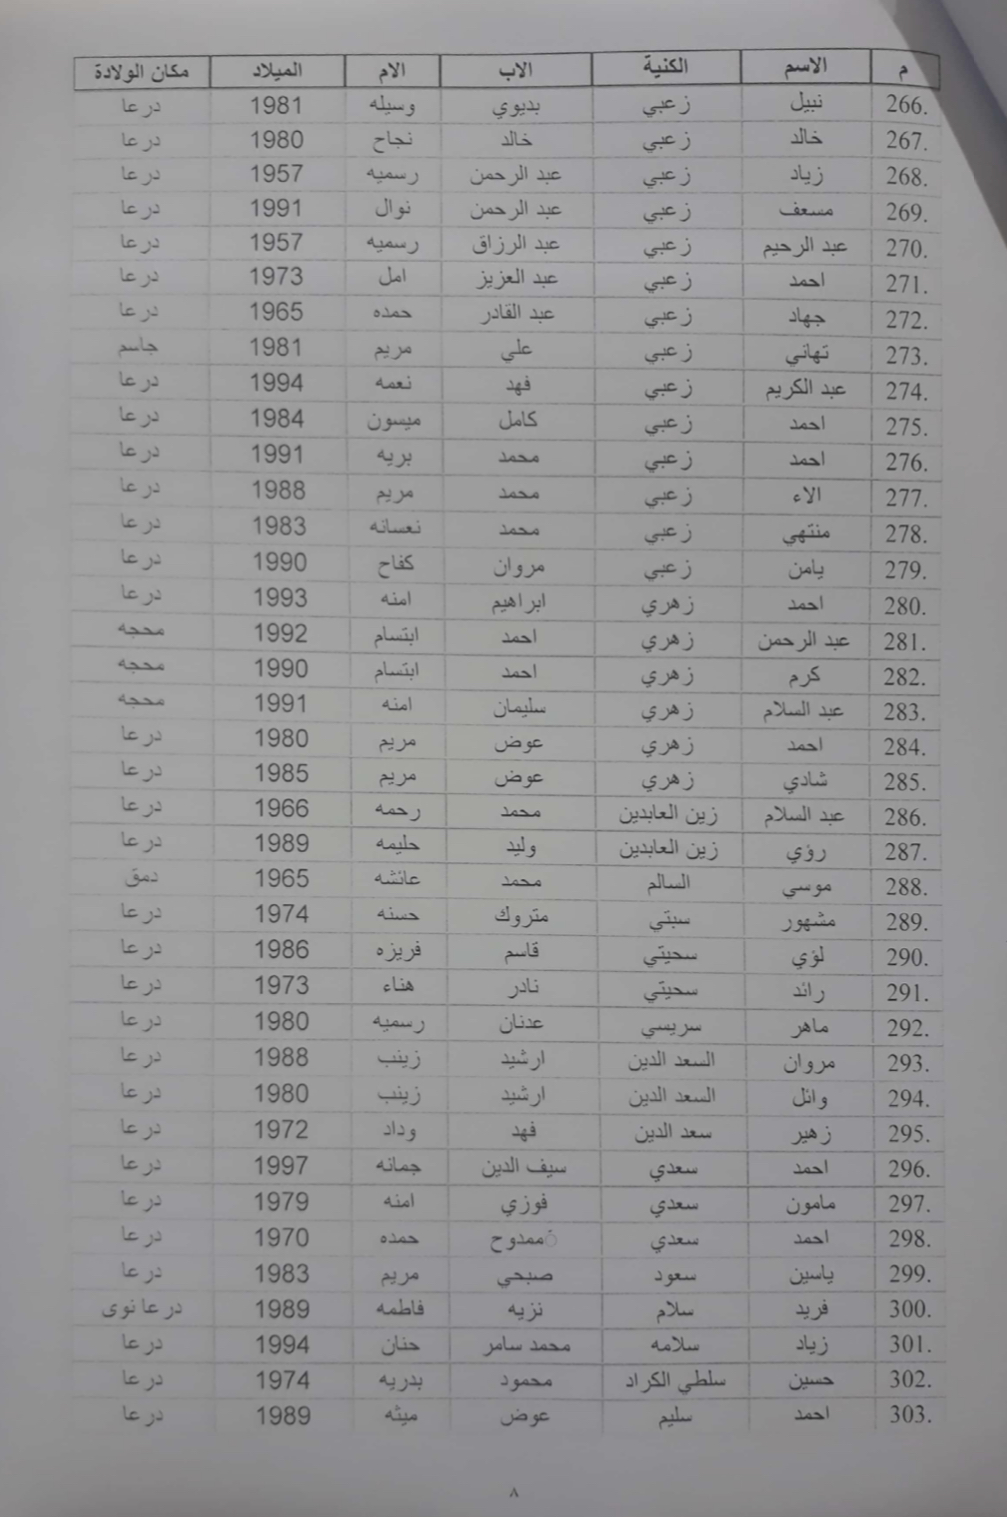 م الاسم الكنية الاب الام الميلاد مكان الولادة
266. نبيل زعبي بديوي وسيله 1981 درعا
267. خالد زعبي خالد نجاح 1980 درعا
268. زياد زعبي عبد الرحمن رسميه 1957 درعا
269. مسعف زعبي عبد الرحمن نوال 1991 درعا
270. عبد الرحيم زعبي عبد الرزاق رسميه 1957 درعا
271. احمد زعبي عبد العزيز امل 1973 درعا
272. جهاد زعبي عبد القادر حمده 1965 درعا
273. تهاني زعبي علي مريم 1981 جاسم
274. عبد الكريم زعبي فهد نعمه 1994 درعا
275. احمد زعبي كامل ميسون 1984 درعا
276. احمد زعبي محمد بريه 1991 درعا
277. الاء زعبي محمد مريم 1988 درعا
278. منتهي زعبي محمد نعسانه 1983 درعا
279. يامن زعبي مروان كفاح 1990 درعا
280. احمد زهري ابراهيم امنه 1993 درعا
281. عبد الرحمن زهري احمد ابتسام 1992 محجه
282. كرم زهري احمد ابتسام 1990 محجه
283. عبد السلام زهري سليمان امنه 1991 محجه
284. احمد زهري عوض مريم 1980 درعا
285. شادي زهري عوض مريم 1985 درعا
286. عبد السلام زين العابدين محمد رحمه 1966 درعا
287. رؤي زين العابدين وليد حليمه 1989 درعا
288. موسي السالم محمد عائشه 1965 دمق
289. مشهور سبتي متروك حسنه 1974 درعا
290. لؤي سحيتي قاسم فريزه 1986 درعا
291. رائد سحيتي نادر هناء 1973 درعا
292. ماهر سريسي عدنان رسميه 1980 درعا
293. مروان السعد الدين ارشيد زينب 1988 درعا
294. وائل السعد الدين ارشيد زينب 1980 درعا
295. زهير سعد الدين فهد وداد 1972 درعا
296. احمد سعدي سيف الدين جمانه 1997 درعا
297. مامون سعدي فوزي امنه 1979 درعا
298. احمد سعدي ممدوح حمده 1970 درعا
299. ياسين سعود صبحي مريم 1983 درعا
300. فريد سلام نزيه فاطمه 1989 درعا نوى
301. زياد سلامه محمد سامر حنان 1994 درعا
302. حسين سلطي الكراد محمود بدريه 1974 درعا
303. احمد سليم عوض ميثه 1989 درعا
٨